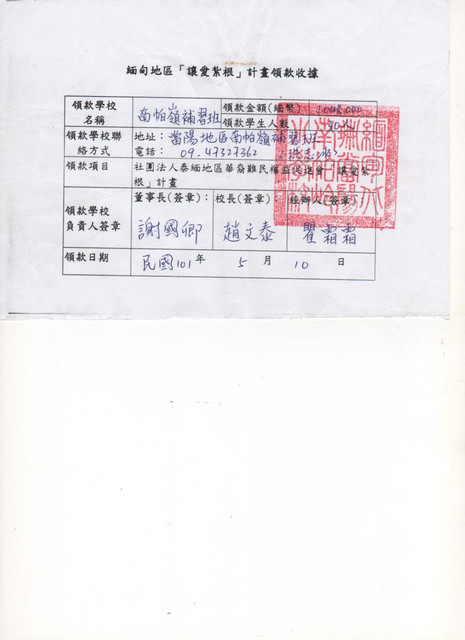 緬甸地區「讓愛紮根」計畫領款收據
領款學校名稱 南帕嶺補習班 領款金額(緬幣)
領款學生人數
領款學校聯絡方式 地址：當陽地區南帕嶺補習班
電話：09.47327362
領款項目 社團法人泰緬地區華裔難民權益促進會「讓愛紮根」計畫
領款學校負責人簽章 董事長(簽章)： 校長(簽章)： 經辦人(簽章)：
謝國卿 趙文泰 瞿霜霜
領款日期 民國101年 5 月 10 日